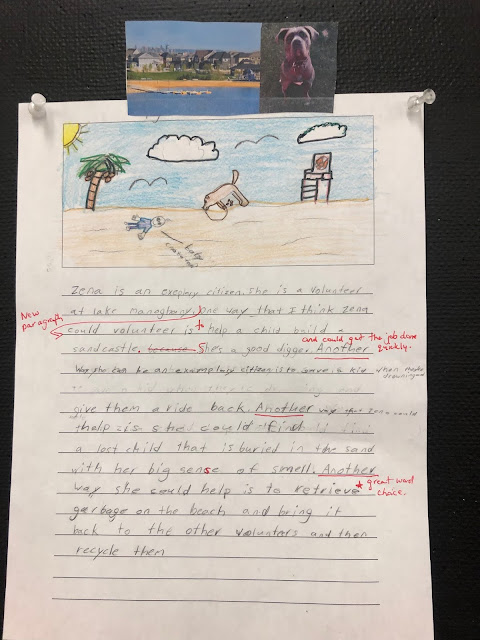 baby
Zena is an exeplary citizen. She is a volunteer
at lake
One way that I think Zena
New paragraph
could volunteer is to help a child build a
and could get the job done quickly.
sandcastle. because She's a good digger. Another
way she can be an exemplary citizen is to save a kid when there drowning and
give them a ride back. Another way that Zena could
help is she could find
a lost child that is buried in the sand
with her big sense of smell. Another
way she could help is to retrieve
great word choice.
garbage on the beach and bring it
back to the other volunters and then
recycle them